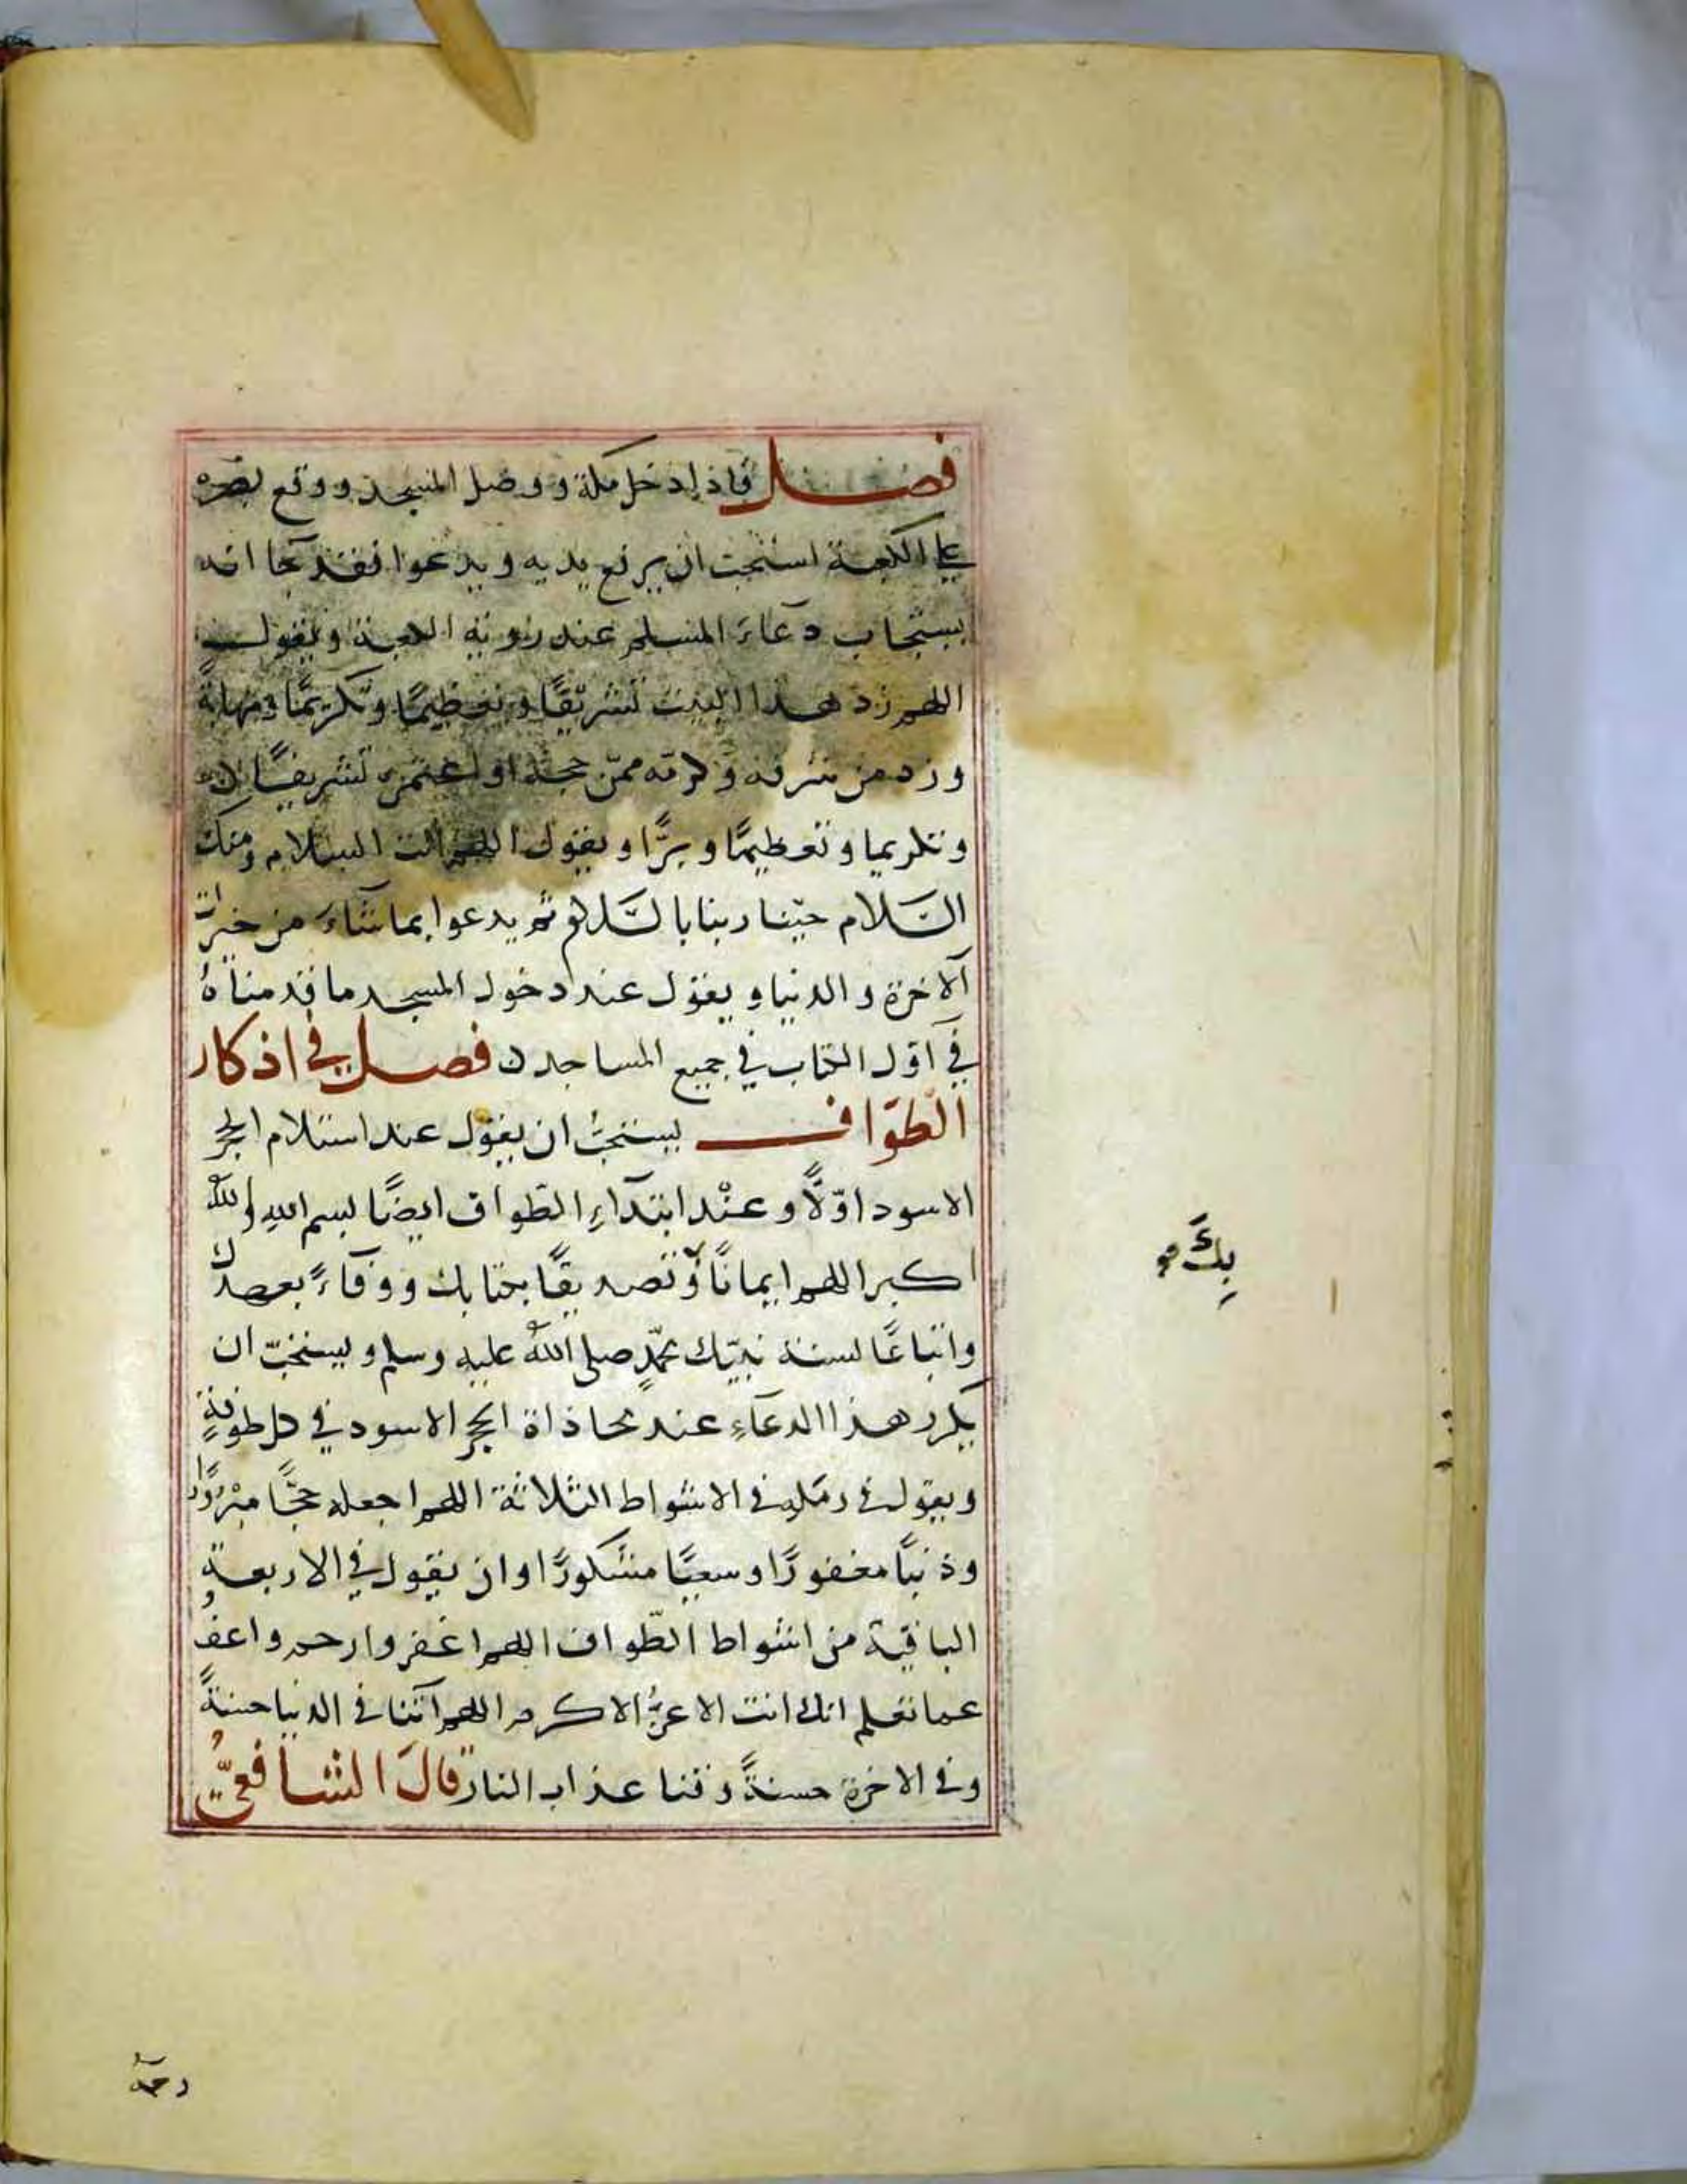 فصل فاذا دخل مكة ووصل المسجد ووقع بصره
على الكعبة استحب ان يرفع يديه ويدعوا فقد جا انه
يستجاب دعاء المسلم عند رؤية الكعبة ويقول
اللهم زد هذا البيت تشريفًا وتعظيمًا وتكريمًا ومهابةً
وزد من شرفه وكرمه ممّن حجه او اعتمره تشريفًا
وتكريما وتعظيمًا وبرًّا ويقول اللهم انت السلام ومنك
السَّلام حيّنا ربنا بالسَّلام ثم يدعوا بما شاء من خيرات
الآخرة والدنيا ويقول عند دخول المسجد ما قدمناهُ
في اوّل الكتاب في جميع المساجد فصل في اذكار
الطّوَاف يستحبُّ ان يقول عند استلام الحجر
الاسود اوّلًا وعنْد ابتدآءِ الطّواف ايضًا بسم اللهِ واللهُ
اكبر اللهم ايمانًا وتصديقًا بكتابك ووفآءً بعهدك
واتباعًا لسنة نبيّك محمّدٍ صلى اللهُ عليه وسلم ويستحبّ ان
يكرر هذا الدعآءِ عند محاذاة الحجر الاسود في كل طوفةٍ
ويقول في رمَلِه في الاشواط الثلاثة اللهم اجعله حجًّا مبْرُورًا
وذنبًا مغفورًا وسعيًا مشكورًا وان يقول في الاربعة
الباقية من اشواط الطّواف اللهم اغفر وارحم واعف
عما تعلم انك انت الاعزُّ الاكرم اللهم آتنا في الدنيا حسنةً
وفي الاخرة حسنةً وقنا عذاب النار قالَ الشافعيّ
بِكَ
رحمه